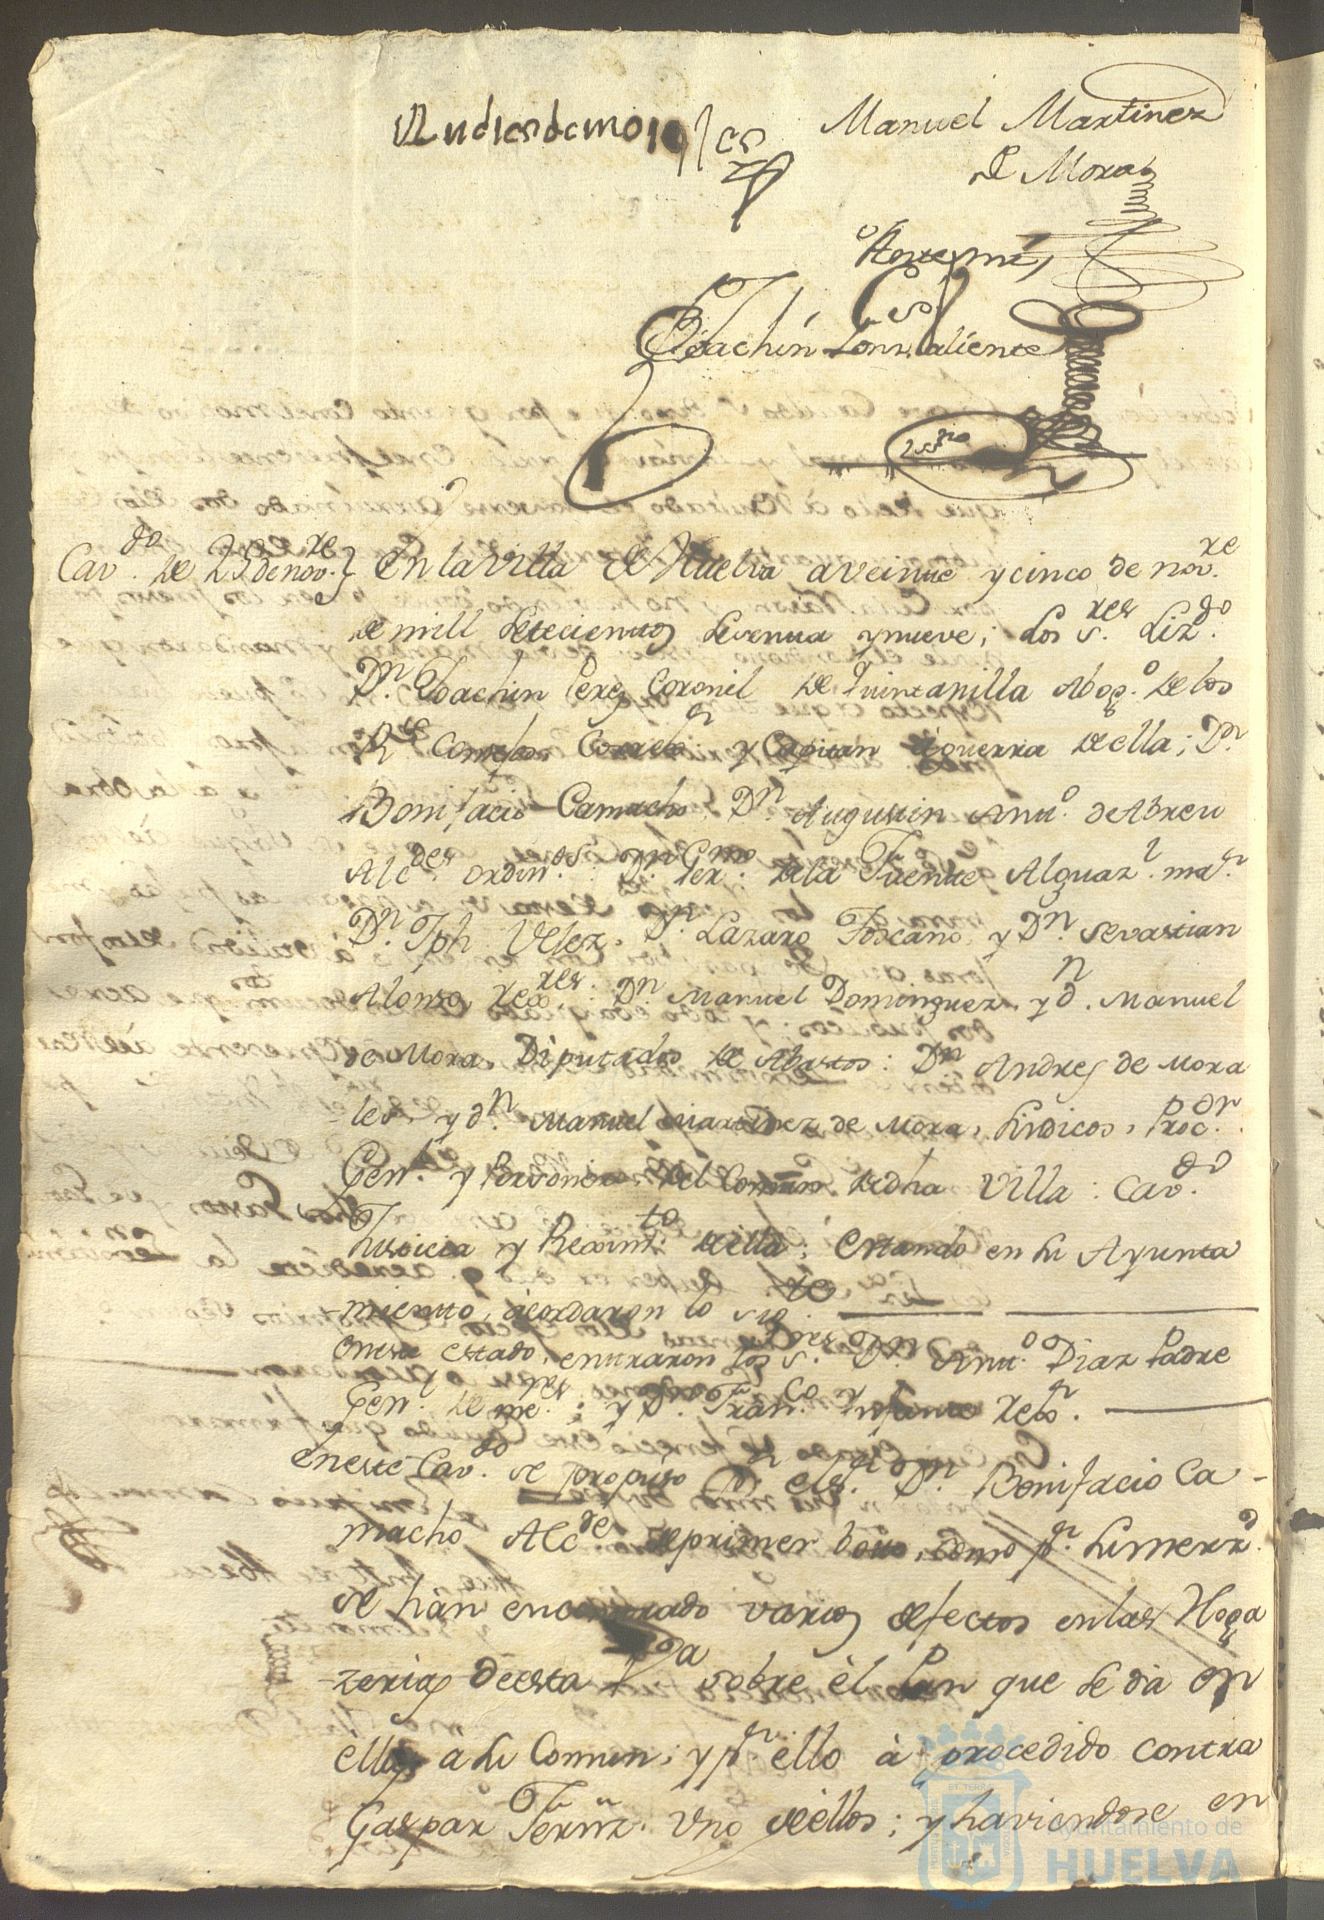 Andres de morales
Manuel Martinez
de Mora
Antemi
Joachin Gonz. Valiente
Cav.do de 25 de nov.re } En la Villa de Huelva a veinte y cinco de nov.re
de mill setecientos sesenta y nueve; Los S.res Liz.do
D.n Joachin Perez Coronel de Quintanilla Abog.o de los
R.s Consejos Correx.r y Capitan à guerra de ella; D.n
Bonifacio Camacho, D.n Augustin Antt.o de Abreu
Alc.des ordin.os: D.n Ger.mo de la Fuente Alguaz.l ma.r
D.n Jph Velez, D.n Lazaro Toscano, y D.n Sevastian
Alonso, Rex.res: D.n Manuel Dominguez, y d.n Manuel
de Mora, Diputados de Abastos: D.n Andres de Mora
les, y d.n Manuel Martinez de Mora, Sindicos, Proc.or
Gen.l y Personero del Comun de dha Villa: Cav.do
Justicia y Rexim.to de ella; Estando en su Ayunta
miento, acordaron lo sig.te
En este estado, entraron los S.res D.n Antt.o Diaz Padre
Gen.l de me.res; y D.n Fran.co Infante Rex.r
En este Cav.do se propuso p.r el S.r D.n Bonifacio Ca-
macho Alc.de de primer voto, como p.r su merz.d
se hàn encontrado varios defectos en las Hoga
zerias de esta V.a sobre èl Pan que se dà en
èllas a su Comun; y p.r ello à procedido contra
Gaspar Fernz. Uno de èllos; y haviendose en
Ayuntamiento de
HUELVA